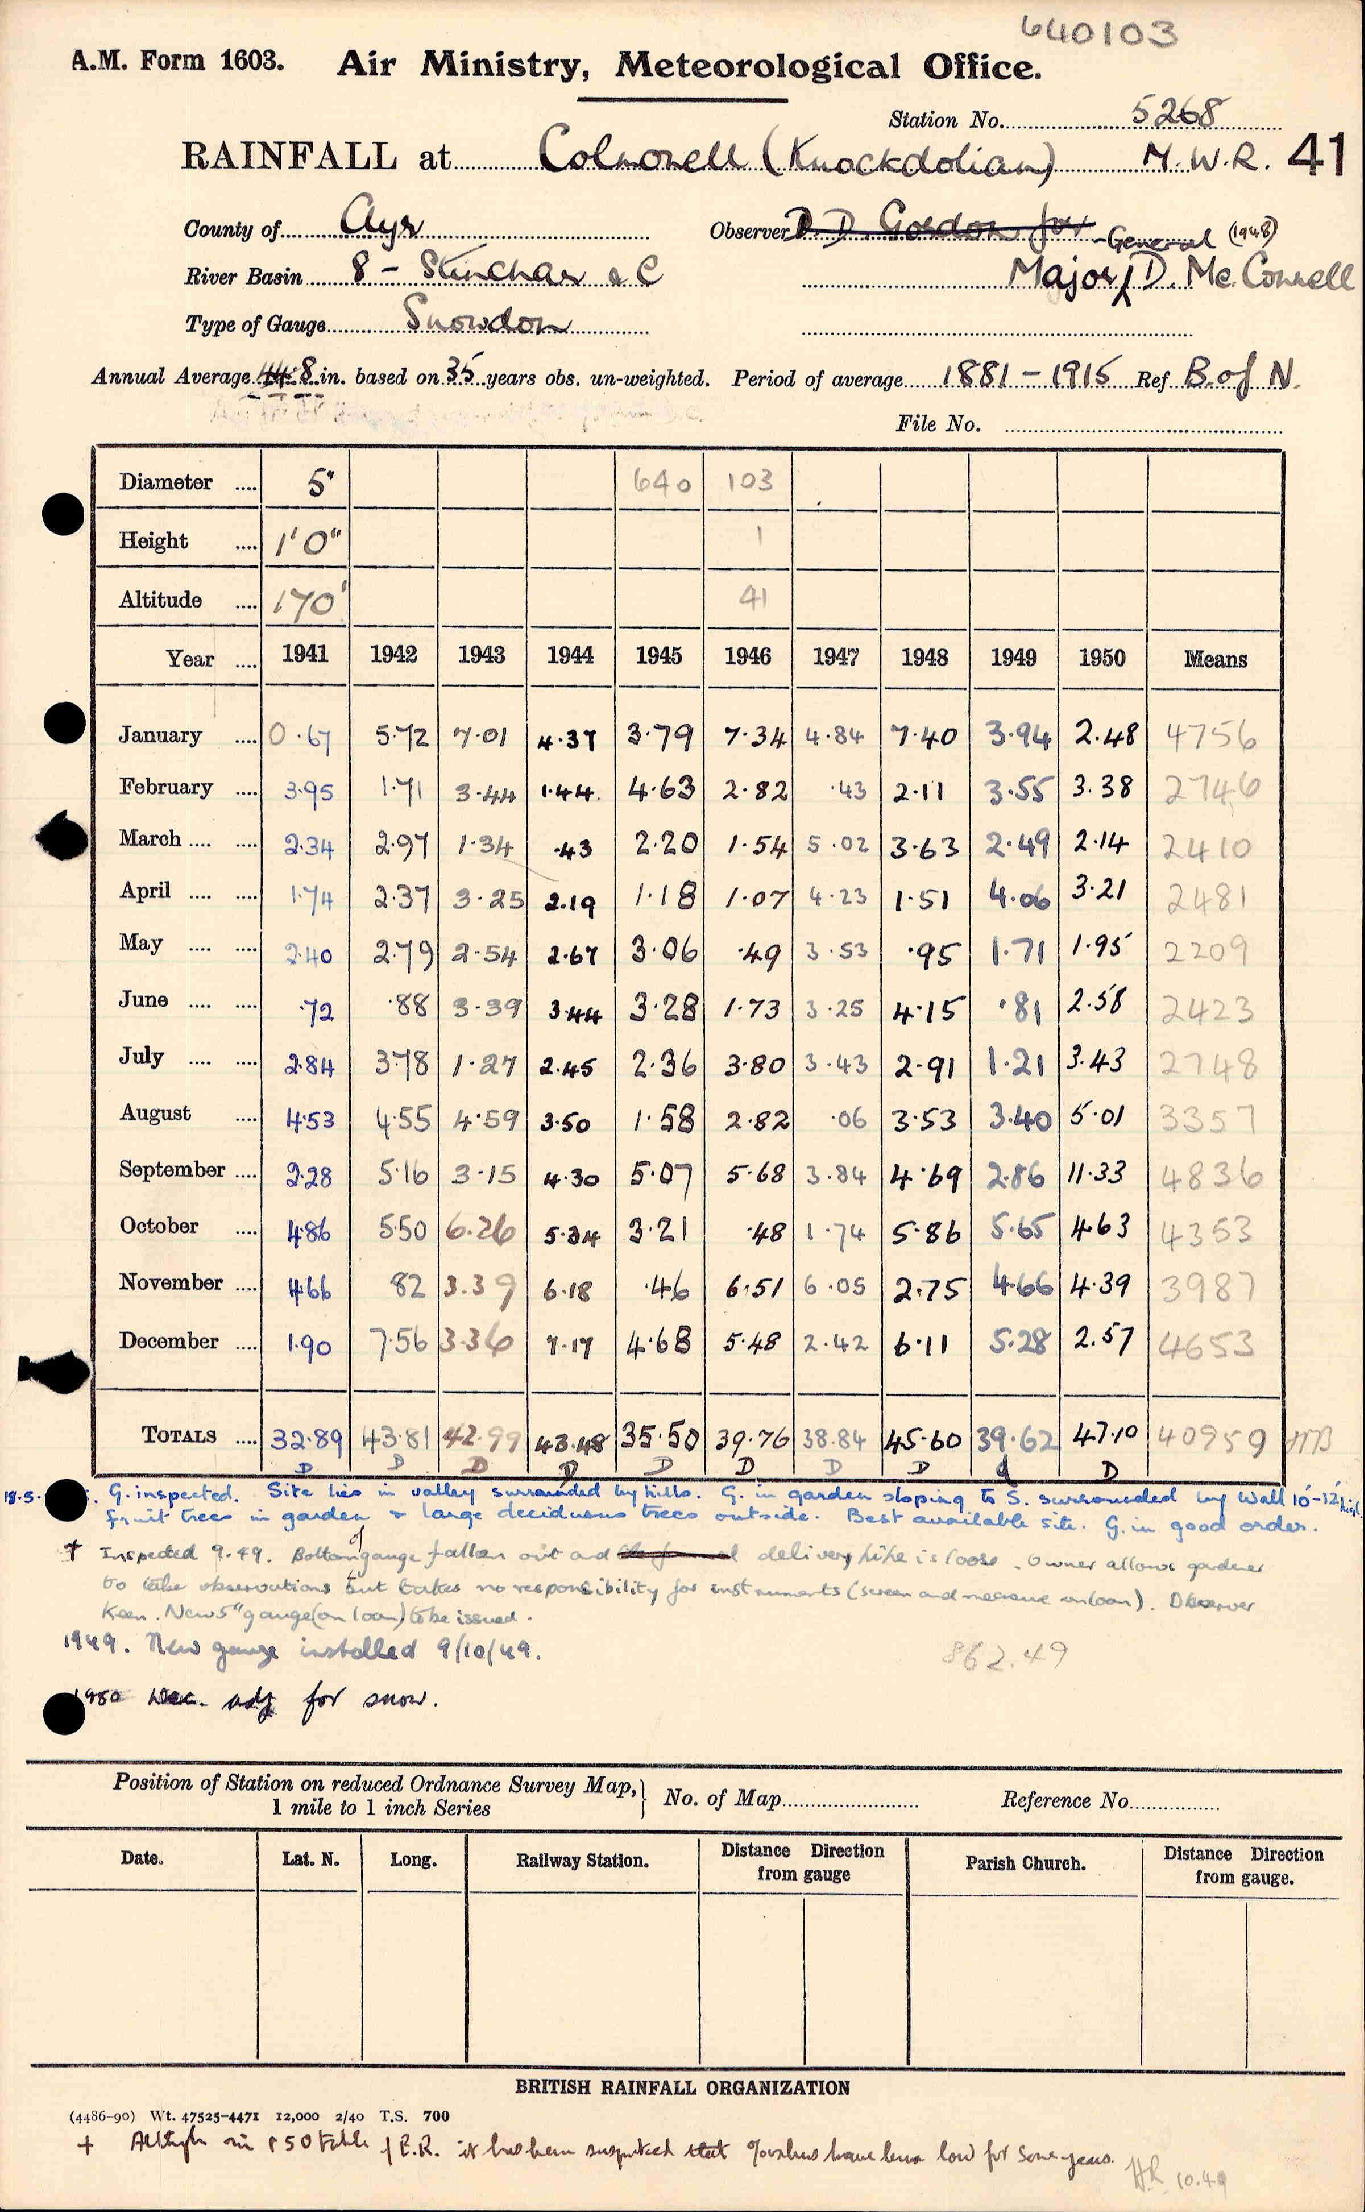 640103
A.M. Form 1603. Air Ministry, Meteorological Office.
Station No. 5268
RAINFALL at Colmonell (Knockdolian) M.W.R. 41
County of Ayr Observer D. D. Gordon for
General (1948)
River Basin 8 - Stinchar &C Major D. Mc.Connell
Type of Gauge Snowdon
Annual Average 44.8 in. based on 35 years obs. un-weighted. Period of average 1881 - 1915 Ref B. of N.
File No.
Diameter .... 5" 640 103
Height .... 1' 0" 1
Altitude .... 170' 41
Year .... 1941 1942 1943 1944 1945 1946 1947 1948 1949 1950 Means
January .... 0.67 5.72 7.01 4.37 3.79 7.34 4.84 7.40 3.94 2.48 4756
February .... 3.95 1.71 3.44 1.44 4.63 2.82 .43 2.11 3.55 3.38 2746
March .... .... 2.34 2.97 1.34 .43 2.20 1.54 5.02 3.63 2.49 2.14 2410
April .... .... 1.74 2.37 3.25 2.19 1.18 1.07 4.23 1.51 4.06 3.21 2481
May .... .... 2.40 2.79 2.54 2.67 3.06 .49 3.53 .95 1.71 1.95 2209
June .... .... .72 .88 3.39 3.44 3.28 1.73 3.25 4.15 .81 2.58 2423
July .... .... 2.84 3.78 1.27 2.45 2.36 3.80 3.43 2.91 1.21 3.43 2748
August .... 4.53 4.55 4.59 3.50 1.58 2.82 .06 3.53 3.40 5.01 3357
September .... 2.28 5.16 3.15 4.30 5.07 5.68 3.84 4.69 2.86 11.33 4836
October .... 4.86 5.50 6.26 5.34 3.21 .48 1.74 5.86 5.65 4.63 4353
November .... 4.66 82 3.39 6.18 .46 6.51 6.05 2.75 4.66 4.39 3987
December .... 1.90 7.56 3.36 7.17 4.68 5.48 2.42 6.11 5.28 2.57 4653
TOTALS .... 32.89 43.81 42.99 43.48 35.50 39.76 38.84 45.60 39.62 47.10 40959
D D D D D D D D d D
18.5. G. inspected. Site lies in valley surrounded by hills. G. in garden sloping to S. surrounded by wall 10'-12' high
fruit trees in garden & large deciduous trees outside. Best available site. G. in good order.
† Inspected 9.49. Bottom of gauge fallen out and delivery pipe is loose. Owner allows gardener
to take observations but takes no responsibility for instruments (screen and measure on loan). Observer
Keen. New 5" gauge (on loan) to be issued.
1949. New gauge installed 9/10/49.
862.49
1950 Dec. adj for snow.
Position of Station on reduced Ordnance Survey Map,
1 mile to 1 inch Series } No. of Map Reference No.
Date. Lat. N. Long. Railway Station. Distance Direction from gauge Parish Church. Distance Direction from gauge.
BRITISH RAINFALL ORGANIZATION
(4486-90) Wt. 47525-4471 12,000 2/40 T.S. 700
+ Although in 1950 table of B.R. it has been suspected that % values have been low for some years.
10.49